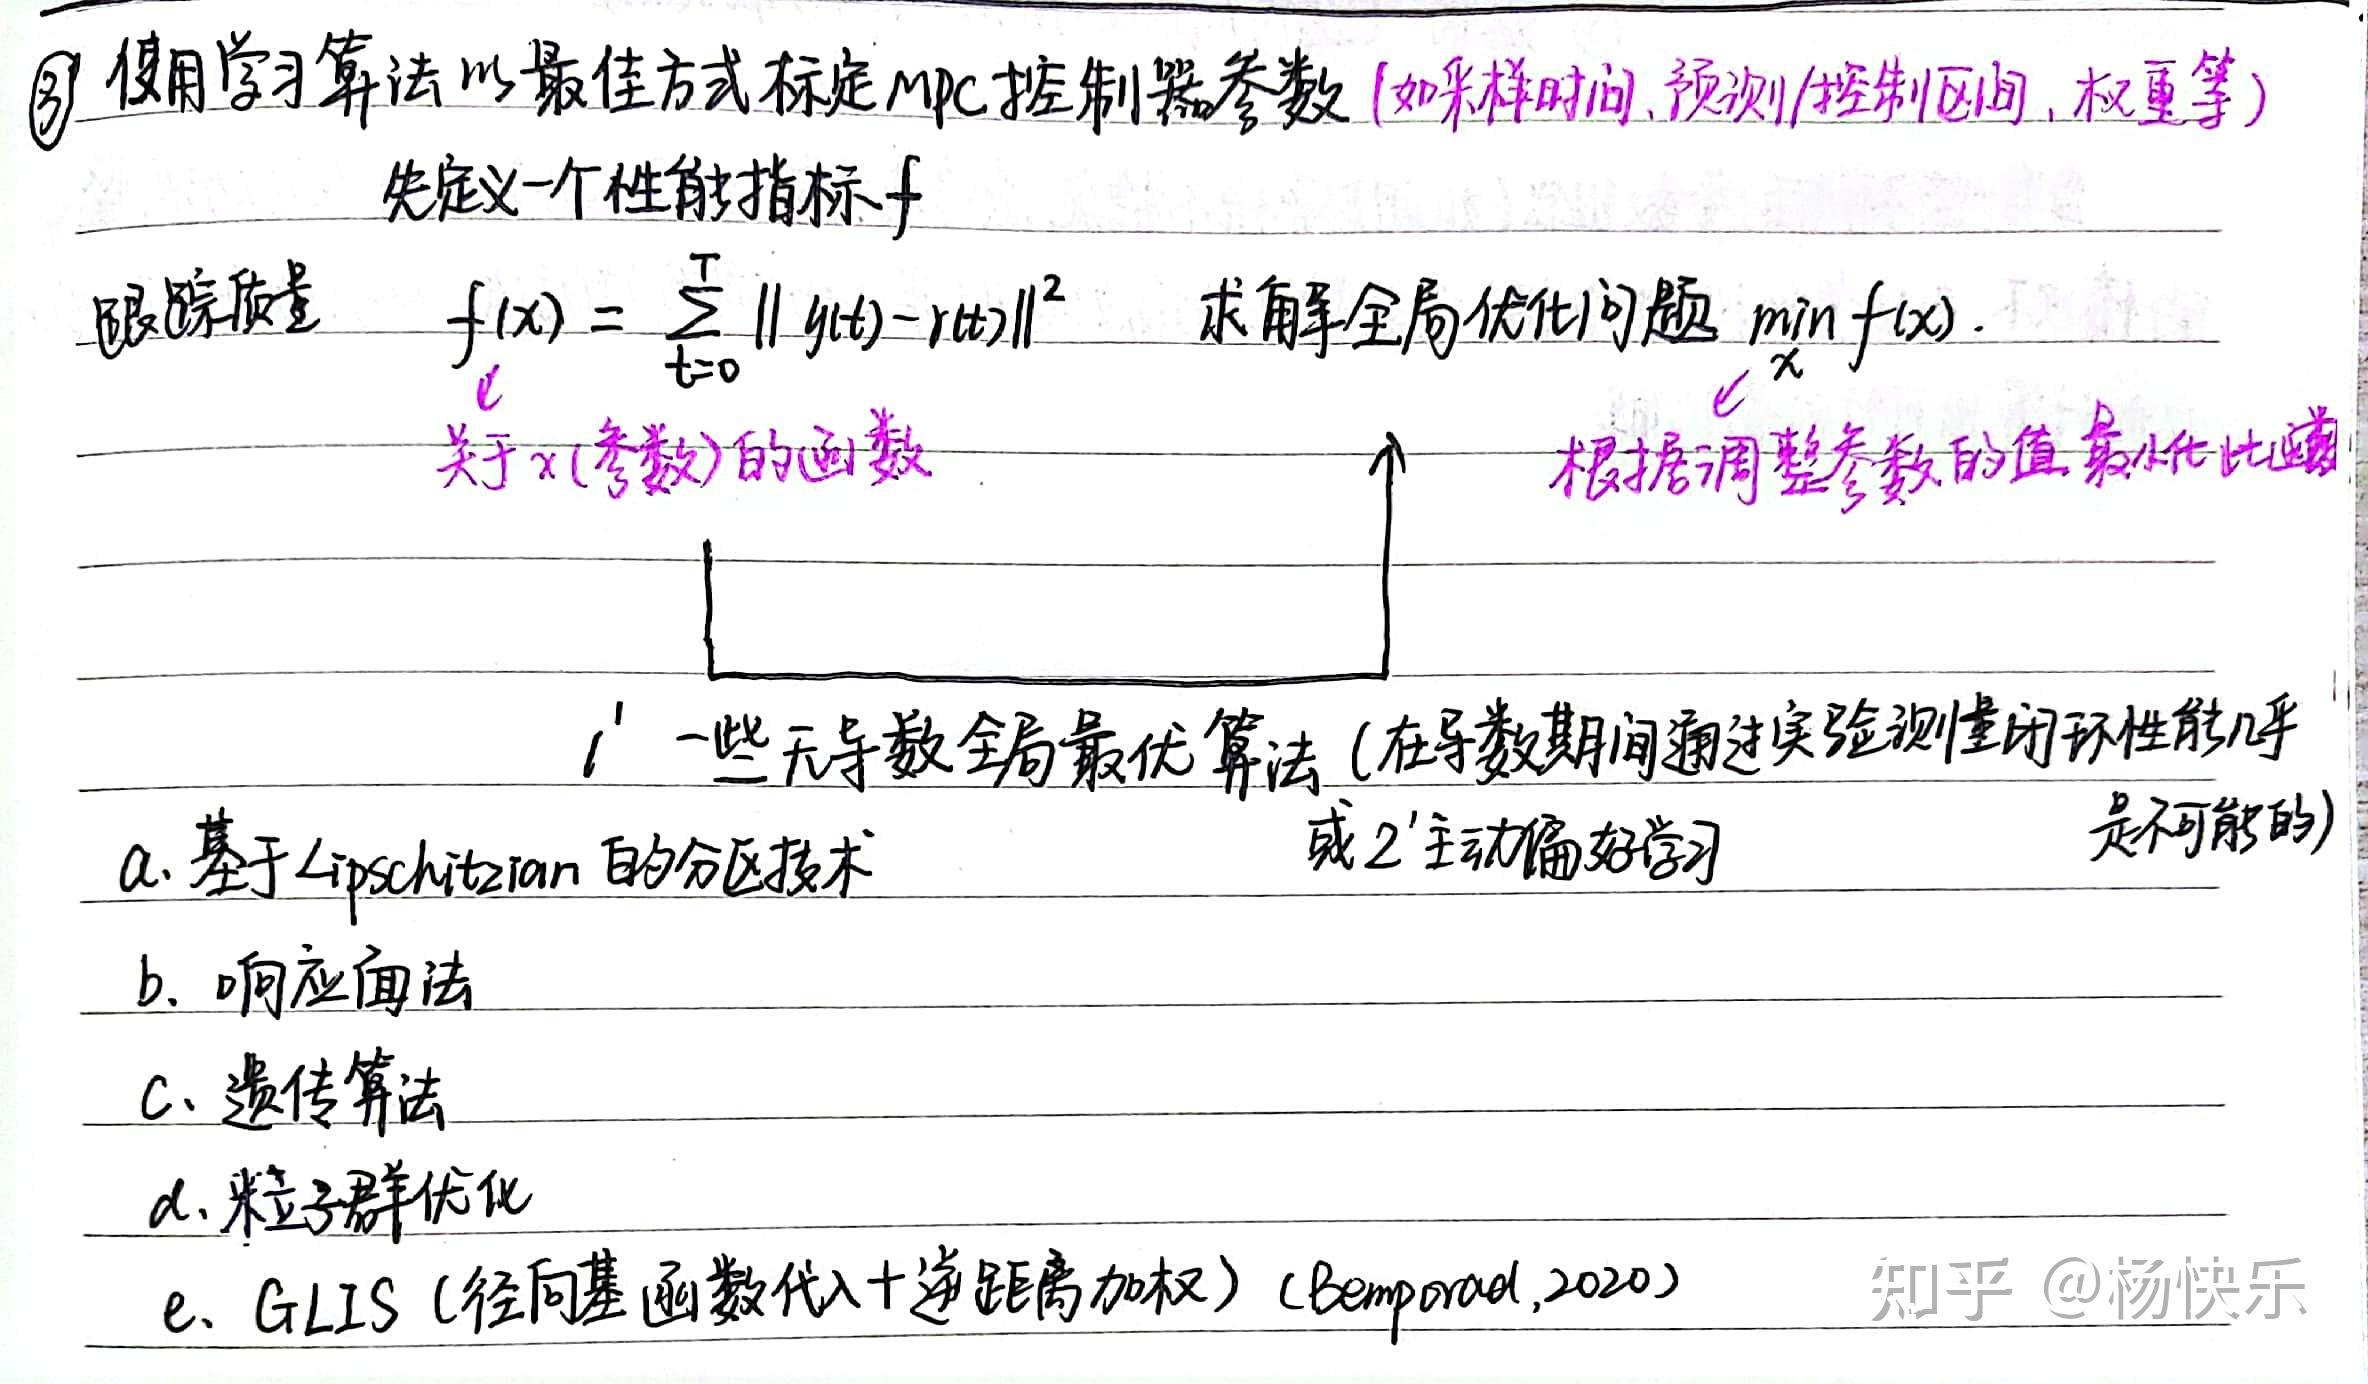 ③ 使用学习算法以最佳方式标定MPC控制器参数(如采样时间、预测/控制区间、权重等)
先定义一个性能指标f
跟踪质量 f(x) = \sum_{t=0}^{T} || y(t) - r(t) ||^2 求解全局优化问题 min_x f(x).
关于x(参数)的函数 根据调整参数的值最小化此函数
1' 一些无导数全局最优算法(在导数期间通过实验测量闭环性能几乎
是不可能的)
a、基于Lipschitzian的分区技术 或2'主动偏好学习
b、响应面法
c、遗传算法
d、粒子群优化
e、GLIS(径向基函数代入+逆距离加权)(Bemporad,2020)
知乎 @杨快乐